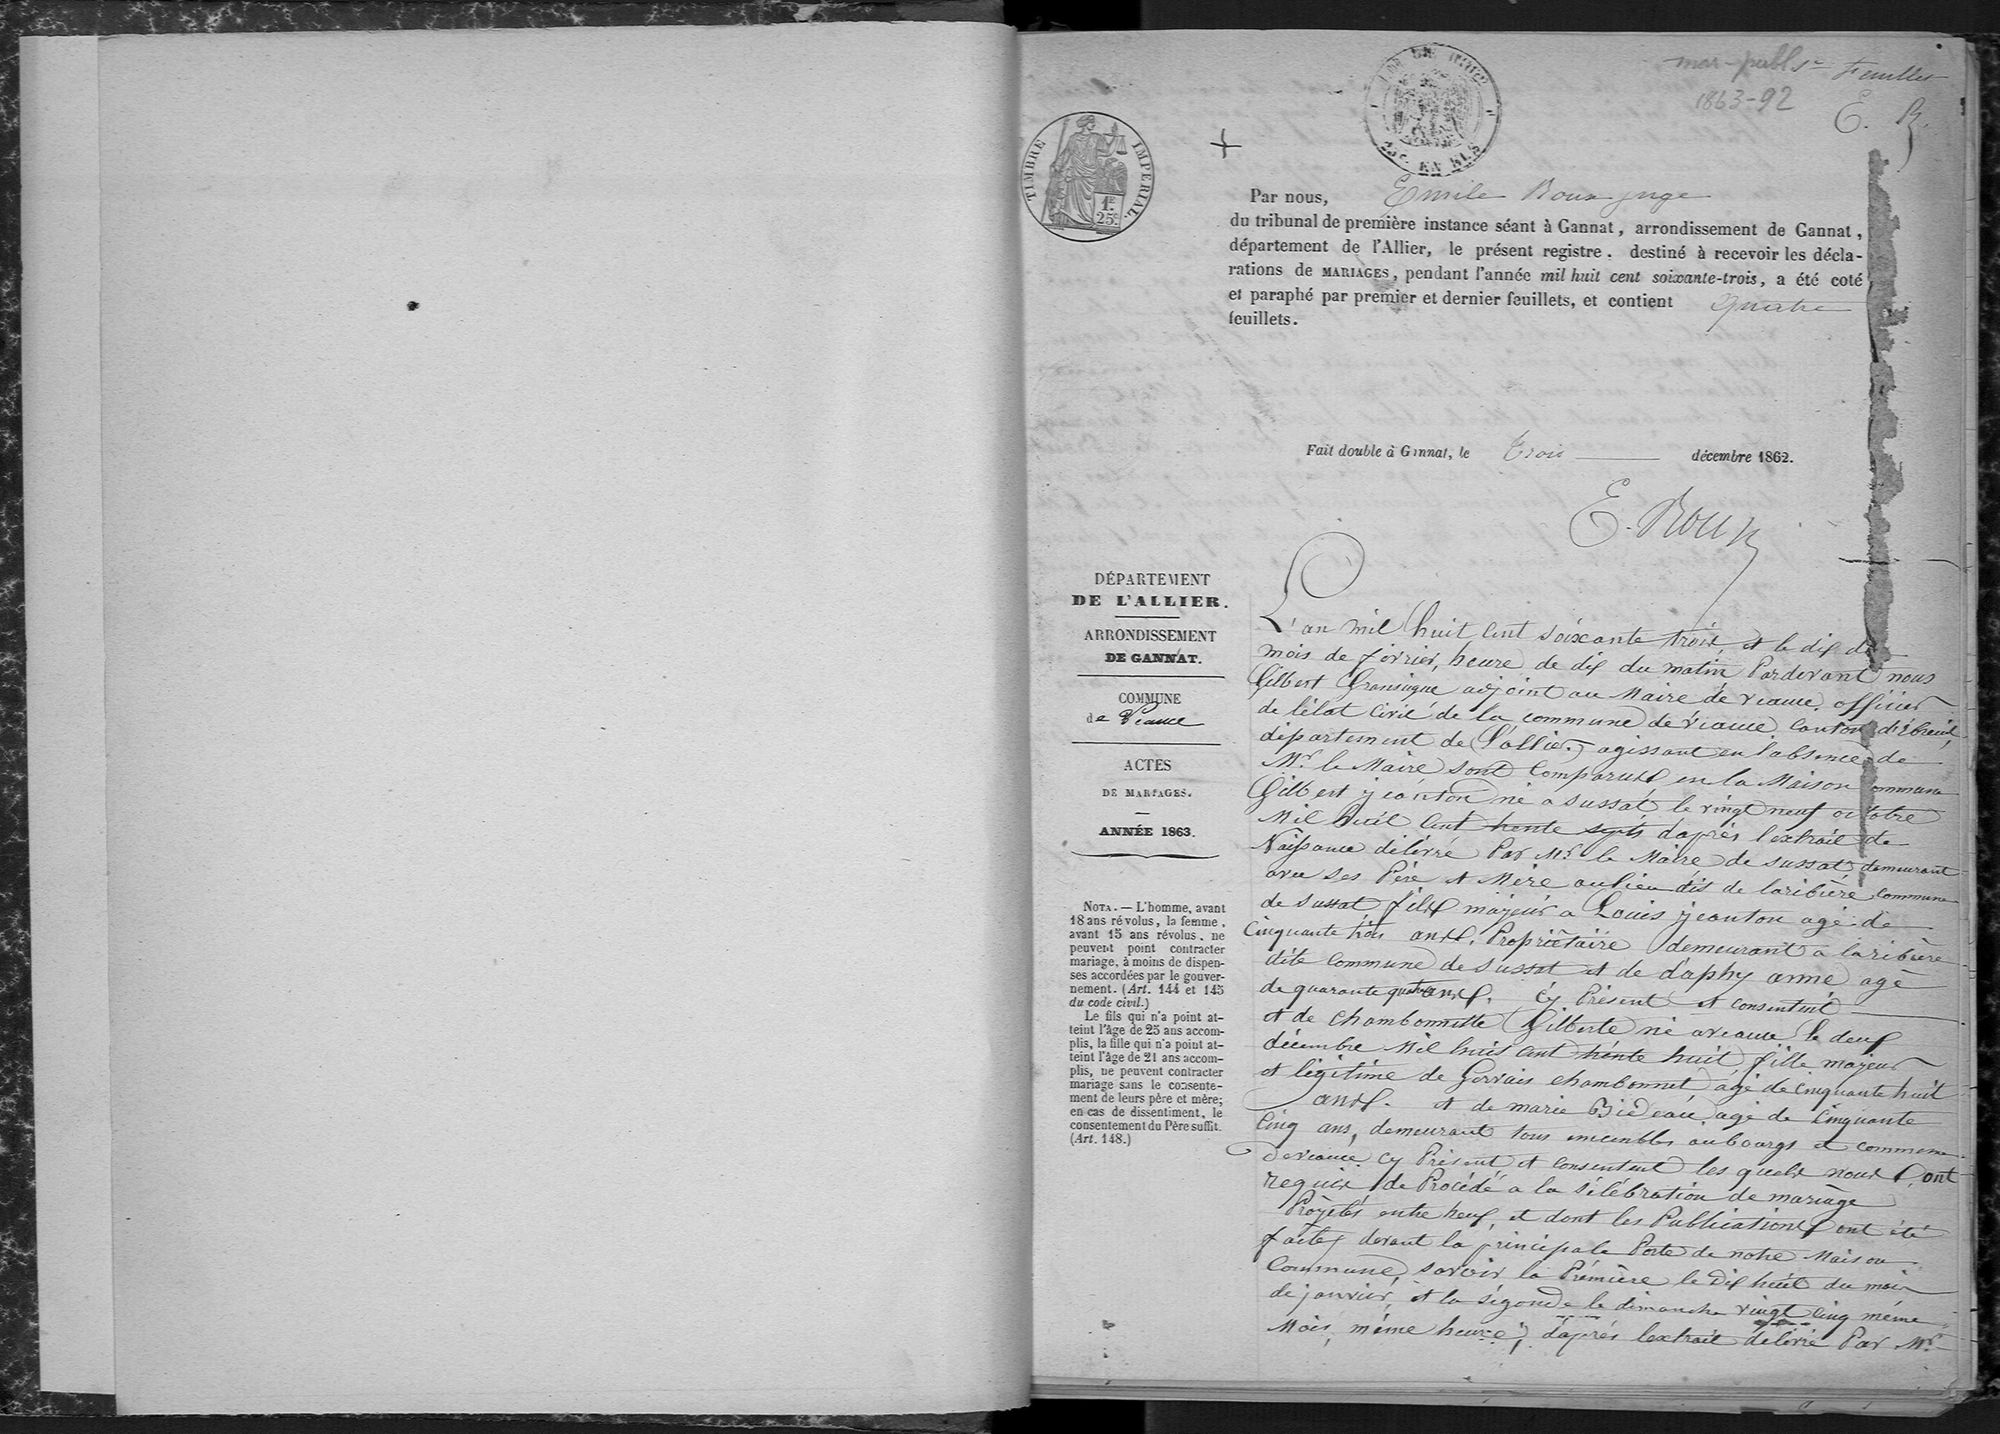 mar-publ^s - Feuillet
1863-92
E. R.
TIMBRE IMPÉRIAL.
1F 25c
EN SUS
Par nous, Emile Roux juge
du tribunal de première instance séant à Gannat, arrondissement de Gannat,
département de l'Allier, le présent registre. destiné à recevoir les décla-
rations de MARIAGES, pendant l'année mil huit cent soixante-trois, a été coté
et paraphé par premier et dernier feuillets, et contient Quatre
feuillets.
Fait double à Gannat, le trois décembre 1862.
E. Roux
DÉPARTEMENT
DE L'ALLIER.
ARRONDISSEMENT
DE GANNAT.
COMMUNE
de Veauce
ACTES
DE MARIAGES.
ANNÉE 1863.
NOTA. — L'homme, avant
18 ans révolus, la femme,
avant 15 ans révolus, ne
peuvent point contracter
mariage, à moins de dispen-
ses accordées par le gouver-
nement. (Art. 144 et 145
du code civil.)
Le fils qui n'a point at-
teint l'âge de 25 ans accom-
plis, la fille qui n'a point at-
teint l'âge de 21 ans accom-
plis, ne peuvent contracter
mariage sans le consente-
ment de leurs père et mère;
en cas de dissentiment, le
consentement du Père suffit.
(Art. 148.)
L'an mil huit cent soixante trois, et le dix du
mois de fèvrier, heure de dix du matin Pardevant nous
Gilbert adjoint au Maire de veauce officier
de l'état Civil de la commune de veauce, canton d'ébreuil,
département de l'allier, agissant en l'absence de
Mr le Maire sont comparus en la Maison commune
Gilbert jeanton né a sussat le vingt neuf octobre
Mil huit cent trente septs d'après l'extrait de
Naissance délivré Par Mr le Maire de sussat, demeurant
avec ses Père et Mère au lieu dit de laribière commune
de sussat fils majeur a Louis jeanton agé de
Cinquante trois ans. Propriètaire demeurant a laribière
dite commune de sussat et de daphy anne agé
de quarante quatre ans. Cy Présent et consentent
et de chambonnette Gilberte né a veauce le deux
décembre Mil huis cent trente huit, fille majeur
et légitime de Gervais chambonnet agé de cinquante huit
ans. et de marie Bideau, agé de Cinquante
Cinq ans, demeurant tous encembles au bourgs et commune
de veauce cy Présent et consentent les quels nous ont
requier de Procédé a la sélébration de mariàge
Projetés entre heux, et dont les Publications ont été
faites devant la principale Porte de notre Maison
Commune, savoir la Prémière le dix huit du mois
de janvier, et la ségonde le dimanche vingt cinq même
Mois, même heure, d'après l'extrait delivré Par Mr